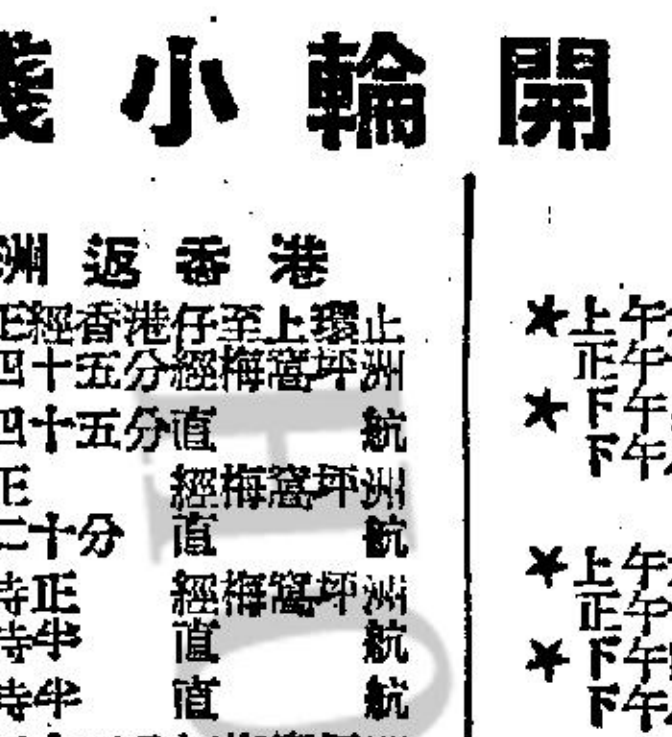 小輪開
洲返香港
正經香港仔至上環止
四十五分經梅窩坪洲
四十五分直航
正 經梅窩坪洲
二十分 直航
時正 經梅窩坪洲
時半 直航
時半 直航
★上午
正午
★下午
下午
★上午
正午
★下午
下午
HO